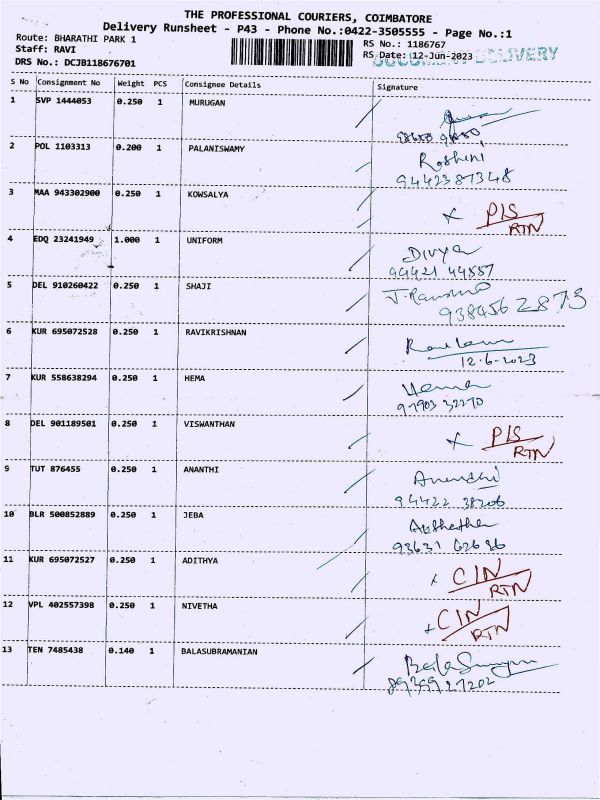 THE PROFESSIONAL COURIERS, COIMBATORE
Delivery Runsheet - P43 - Phone No.:0422-3505555 - Page No.:1
Route: BHARATHI PARK 1
Staff: RAVI
DRS No.: DCJB118676701
RS No.: 1186767
RS Date: 12-Jun-2023
DOCUMENT DELIVERY
S No Consignment No Weight PCS Consignee Details Signature
1 SVP 1444053 0.250 1 MURUGAN
2 POL 1103313 0.200 1 PALANISWAMY Roshini
9442387348
3 MAA 943302900 0.250 1 KOWSALYA x P/S
RTN
4 EDQ 23241949 1.000 1 UNIFORM Divya
94421 44557
5 DEL 910260422 0.250 1 SHAJI
9384562873
6 KUR 695072528 0.250 1 RAVIKRISHNAN
12-6-2023
7 KUR 558638294 0.250 1 HEMA Hema
97903 32270
8 DEL 901189501 0.250 1 VISWANTHAN x P/S
RTN
9 TUT 876455 0.250 1 ANANTHI Ananthi
94422 38206
10 BLR 500852889 0.250 1 JEBA
93631 62636
11 KUR 695072527 0.250 1 ADITHYA x C/N
RTN
12 VPL 402557398 0.250 1 NIVETHA x C/N
RTN
13 TEN 7485438 0.140 1 BALASUBRAMANIAN
8939927202